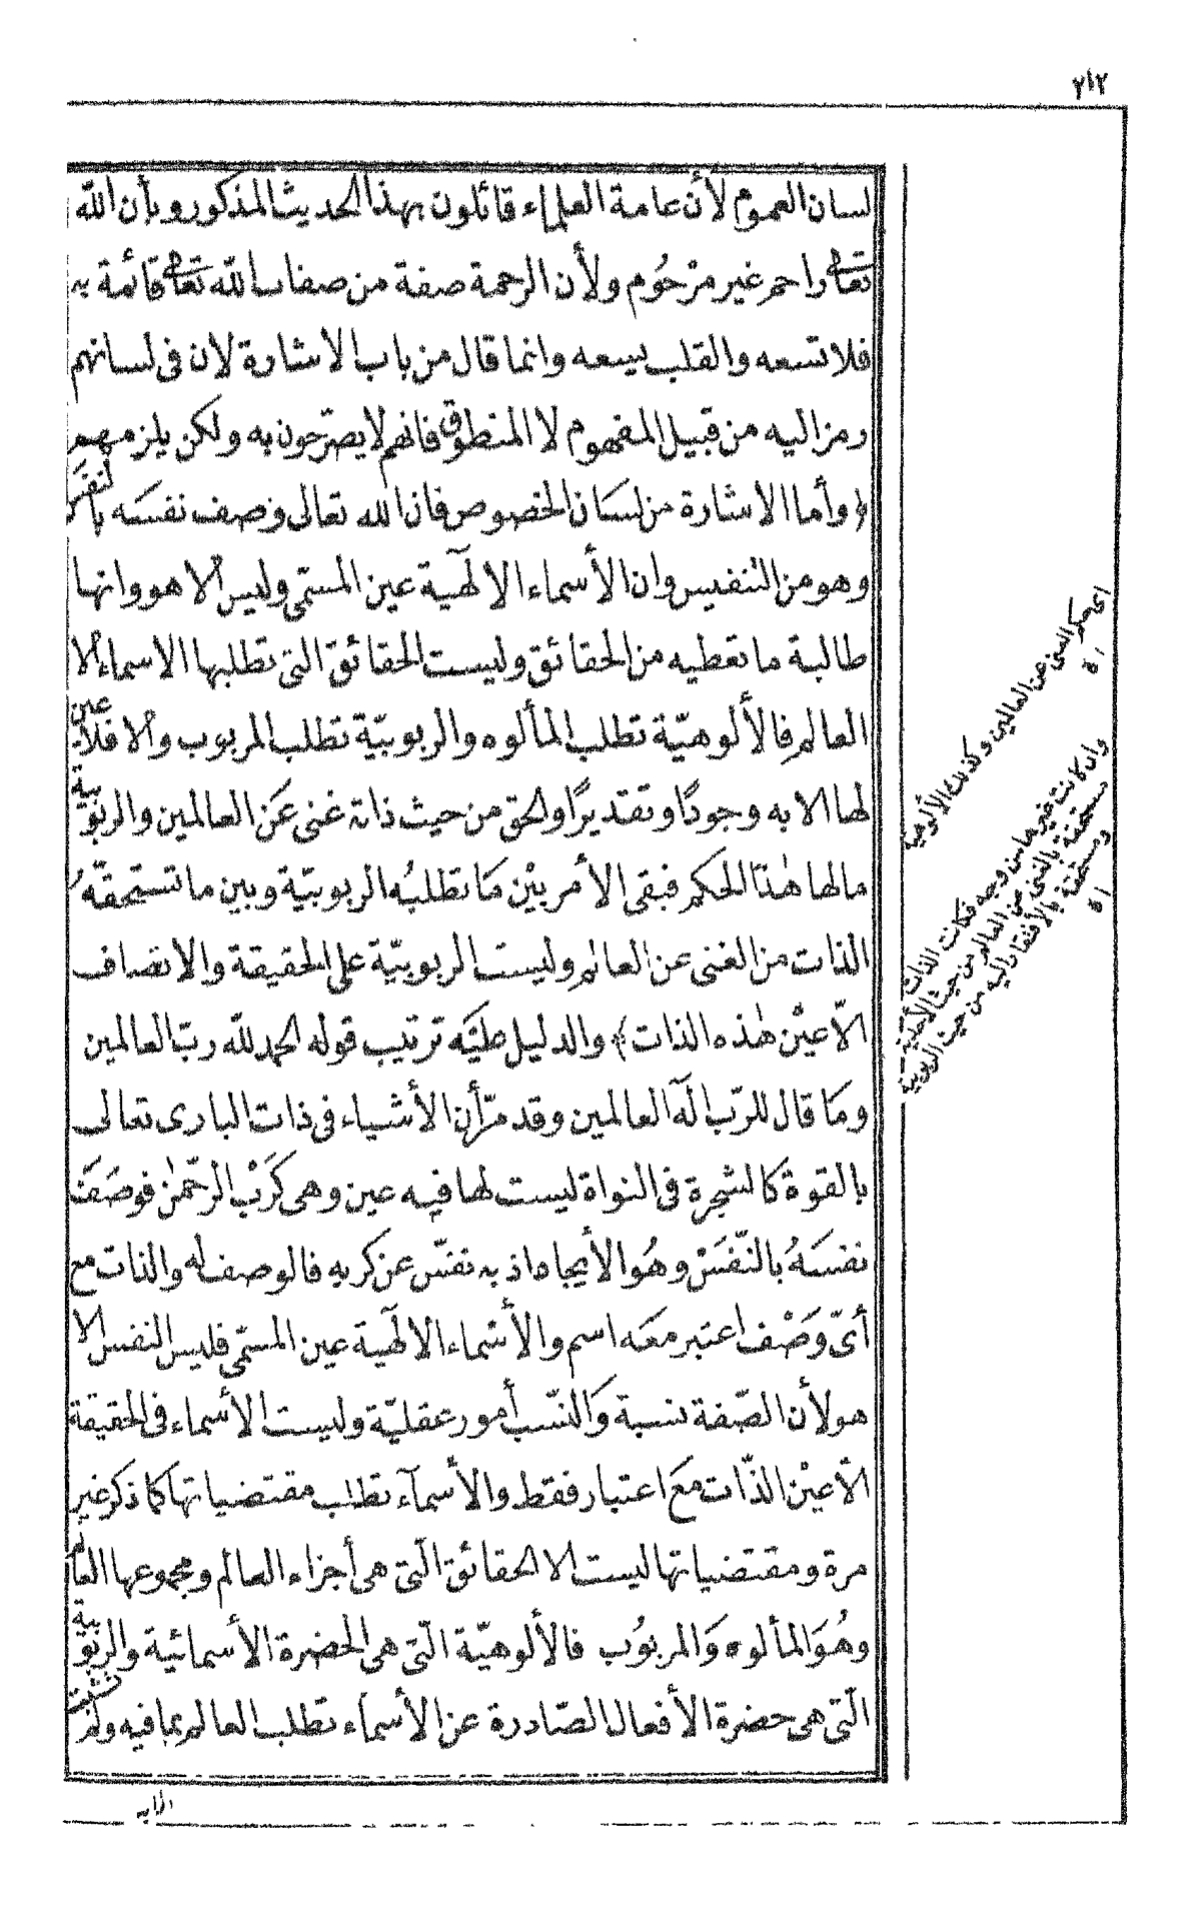 ٢١٢
لسان العموم لأن عامة العلماء قائلون بهذا الحديث المذكور وبأن الله
تعالى راحم غير مرْحُوم ولأن الرحمة صفة من صفات الله تعالى قائمة به
فلا تسعه والقلب يسعه وانما قال من باب الاشارة لان فى لسانهم
رمز اليه من قبيل المفهوم لا المنطوق فانهم لا يصرّحون به ولكن يلزمهم
﴿وأما الاشارة من لسَان الخصوص فان الله تعالى وصف نفسَه بالنفَس
وهو من التنفيس وان الأسماء الالٓهية عين المسمّى وليس الا هو وانها
طالبة ما تعطيه من الحقائق وليست الحقائق التى تطلبها الاسماء الا
العالم فالألوهيّة تطلب المألوه والربوبيّة تطلب المربوب والا فلا عين
لها الا به وجودًا وتقديرًا والحق من حيث ذاته غنى عَن العالمين والربوبية
ما لها هٰذا الحكم فبقى الأمر بيْن مَا تطلبُه الربوبيّة وبين ما تستحقّهُ
الذات من الغنى عن العالم وليست الربوبيّة على الحقيقة والاتصاف
الّا عيْن هٰذه الذات﴾ والدليل عليَه ترتيب قوله الحمد لله ربّ العالمين
ومَا قال للرّب الٓه العالمين وقد مرّ أن الأشياء فى ذات البارى تعالى
بالقوة كَالشجرة فى النواة ليست لها فيه عين وهى كَرَبْ الرحّمٰن فوصَفَ
نفسَهُ بالنّفَسْ وهُو الأيجاد اذ به تنفّس عن كربه فالوصف له والذات مع
أىّ وَصْف اعتبر معَه اسم والأسْماء الالٓهية عين المسمّى فليس النفس الا
هو لأن الصّفة نسبة وَالنّسَب أمور عقليّة وليست الأسماء فى الحقيقة
الّا عيْن الذّات مَع اعتبار فقط والأسمآء تطلب مقتضياتها كما ذكر غير
مرة ومقتضياتها ليست الا الحقائق الّتى هى أجزاء العالم ومجموعها العالم
وهُوَ المألوه وَالمربوُب فالألوهيّة الّتى هى الحضرة الأسمائية والربوبية
الّتى هى حضرة الأفعال الصّادرة عن الأسمَاء تطلب العالم بما فيه ولم تثبت
الا به
اى حكم الغنى عن العالمين وكذلك الألوهية
اه
وان كانت غيرها من وجه فكانت الذات
مستحقة بالغنى عن العالم من حيث الأحدية
ومستحقة بالأفتقار اليه من حيث الربوبية
اه